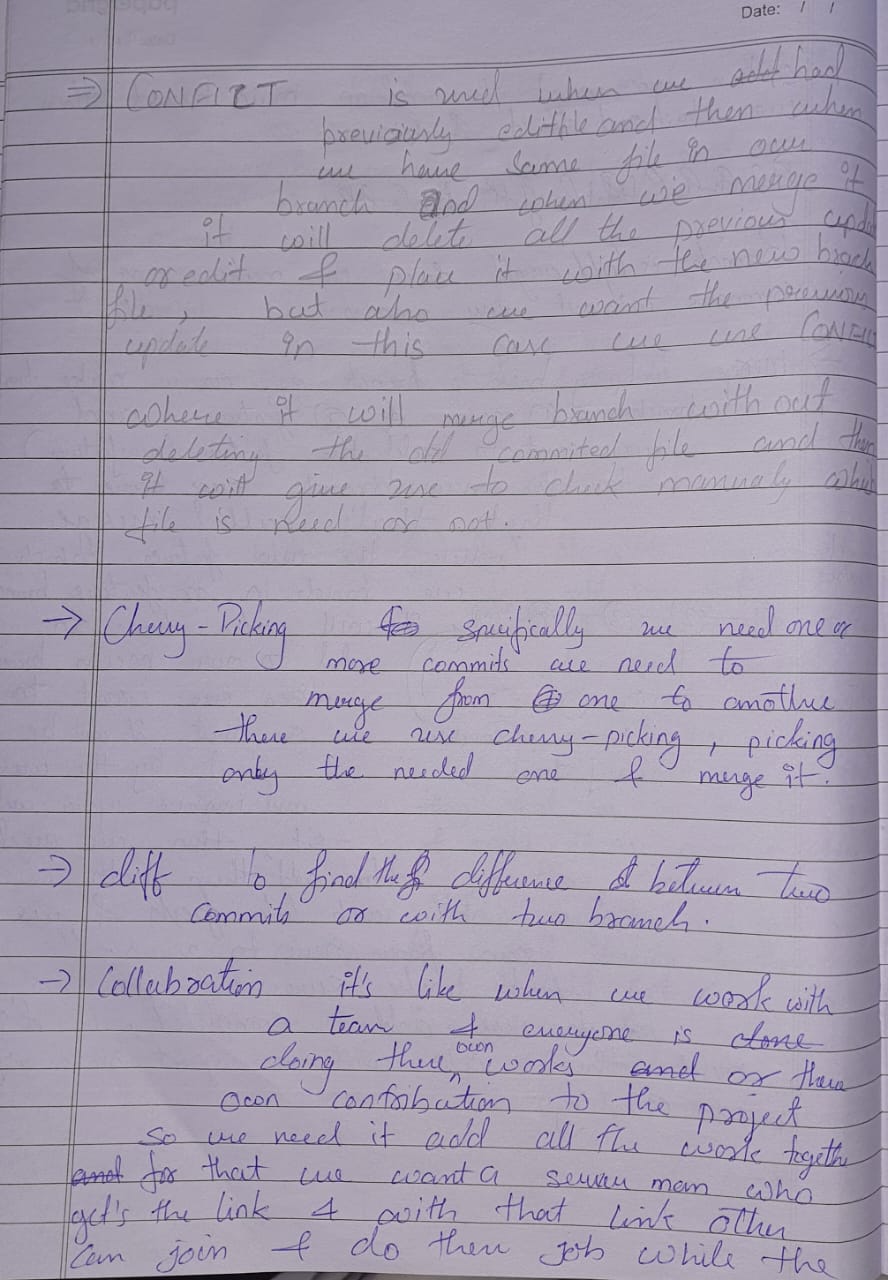 Date: / /
⇒ CONFILT is used when we add had
previciusly editble and then when
we have same file in our
branch and when we merge it
it will delete all the previous upda
or edit & place it with the new brach
file, but also we want the previous
update in this case we use CONFLI
where it will merge branch without
deleting the old commited file and then
it will give use to check manualy which
file is need or not.
→ Cherry-Picking specifically we need one or
more commits are need to
merge from one to another
there we use cherry-picking, picking
only the needed one & merge it.
→ diff to find the difference between two
commits or with two branch.
→ Collabration it's like when we work with
a team & everyone is done
doing there own works and or there
own contribution to the project
so we need it add all the work togethe
and for that we want a man who
get's the link & with that link other
can join & do then job while the